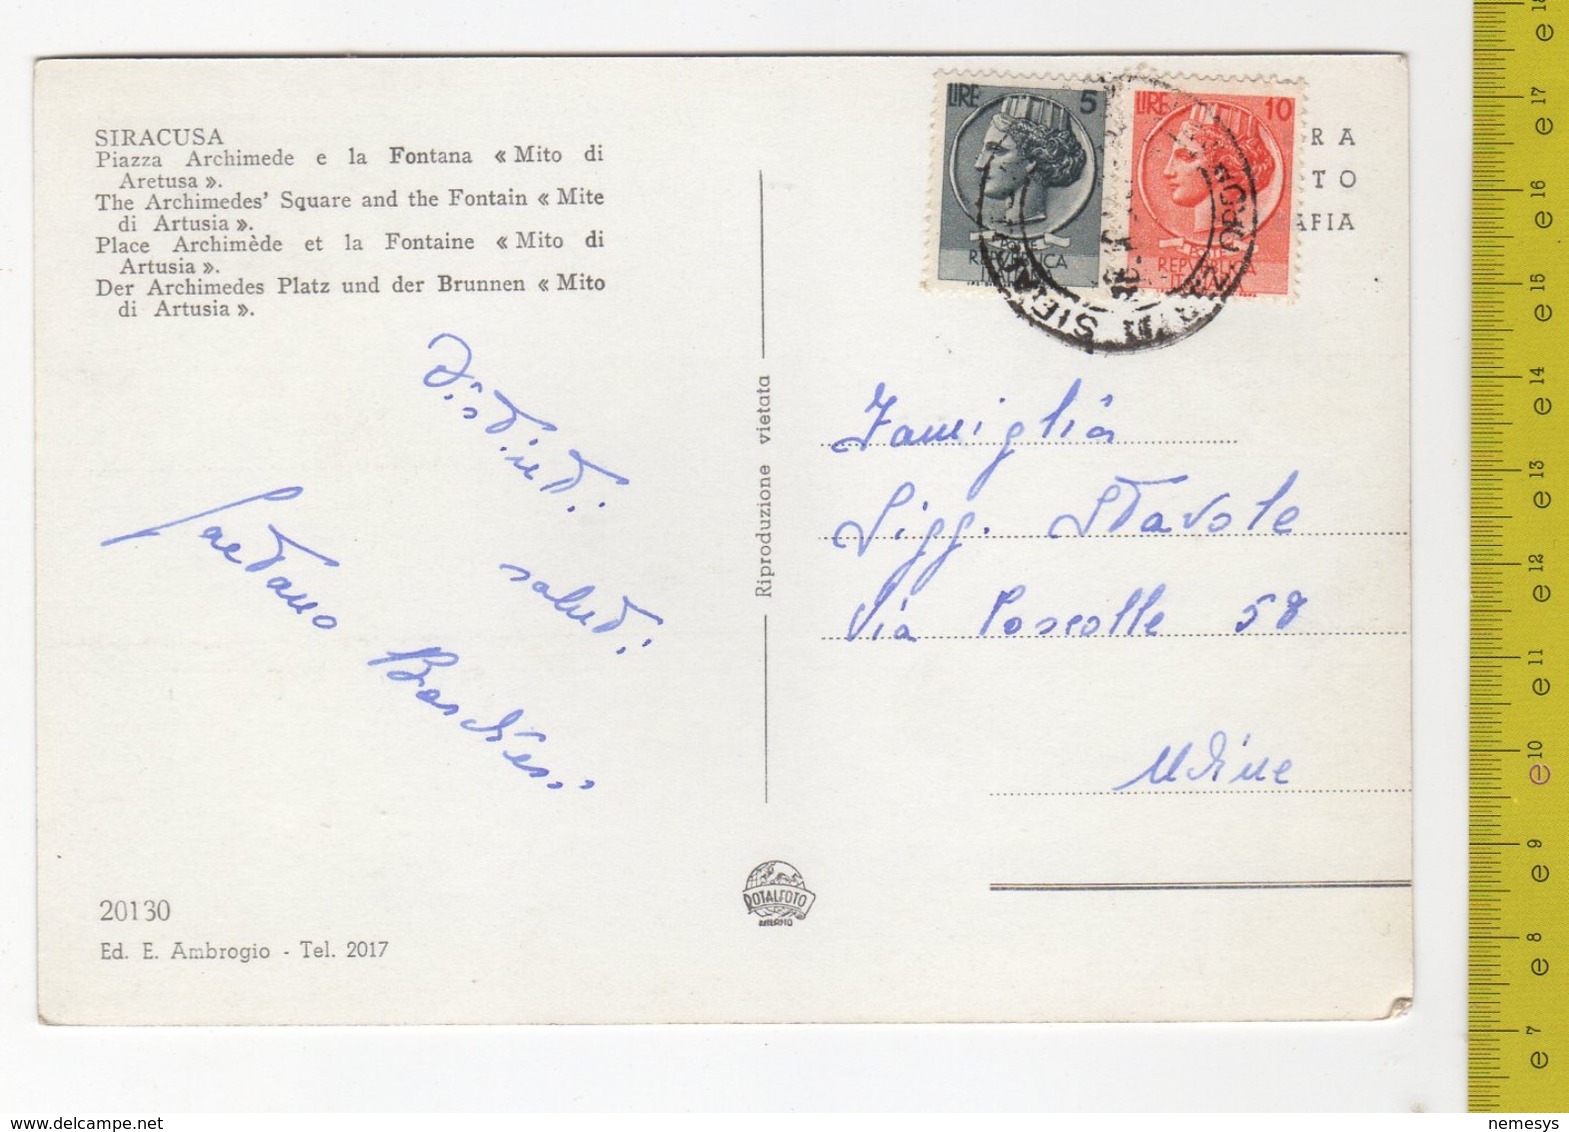 SIRACUSA
Piazza Archimede e la Fontana « Mito di
Aretusa ».
The Archimedes' Square and the Fontain « Mite
di Artusia ».
Place Archimède et la Fontaine « Mito di
Artusia ».
Der Archimedes Platz und der Brunnen « Mito
di Artusia ».
LIRE 5
REPUBBLICA
LIRE 10
REPUBBLICA
RA
TO
AFIA
Distinti
saluti
Gaetano
Riproduzione vietata
Famiglia
Sigg. Stavole
Via Poscolle 58
Udine
ROTALFOTO
20130
Ed. E. Ambrogio - Tel. 2017
18
17
16
15
14
13
12
11
10
9
8
7
nemesys